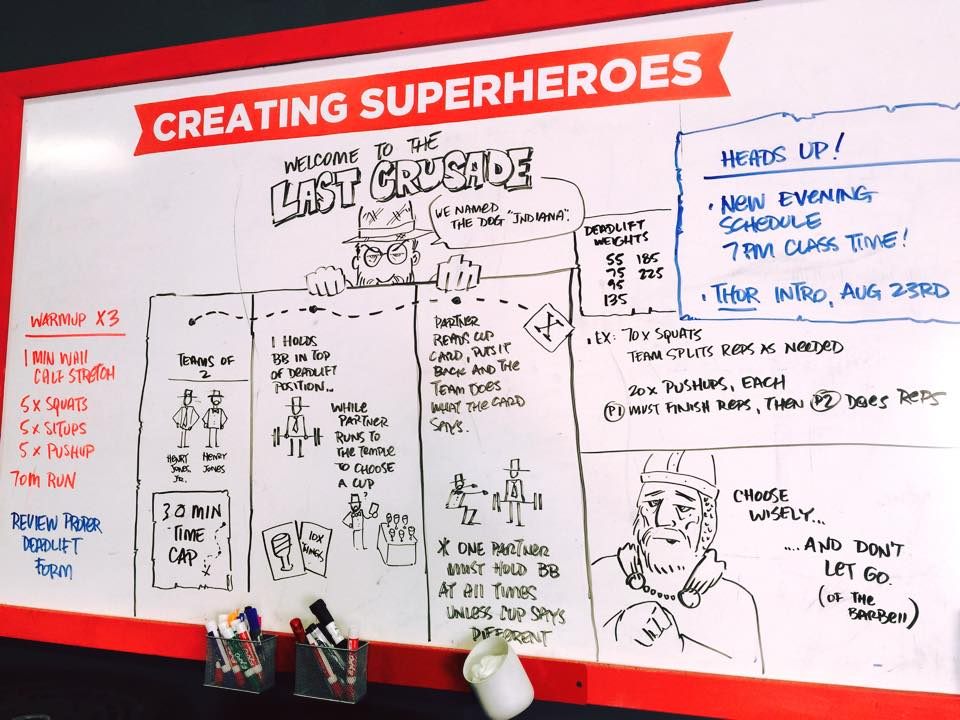 CREATING SUPERHEROES
WELCOME TO THE
LAST CRUSADE
WE NAMED
THE DOG "INDIANA".
WARMUP X3
1 MIN WALL
CALF STRETCH
5 x SQUATS
5 x SITUPS
5 x PUSHUP
70m RUN
REVIEW PROPER
DEADLIFT
FORM
TEAMS OF
2
HENRY
JONES
JR.
HENRY
JONES
30 MIN
TIME
CAP
X
1 HOLDS
BB IN TOP
OF DEADLIFT
POSITION...
WHILE
PARTNER
RUNS TO
THE TEMPLE
TO CHOOSE
A CUP
?
10X
THINGS
PARTNER
READS CUP
CARD, PUTS IT
BACK AND THE
TEAM DOES
WHAT THE CARD
SAYS.
X
* ONE PARTNER
MUST HOLD BB
AT All TIMES
UNLESS CUP SAYS
DIFFERENT
DEADLIFT
WEIGHTS
55 185
75 225
95
135
HEADS UP!
• NEW EVENING
SCHEDULE
7PM CLASS TIME!
• THOR INTRO, AUG 23RD
• EX: 70x SQUATS
TEAM SPLITS REPS AS NEEDED
20x PUSHUPS, EACH
P1 MUST FINISH REPS, THEN P2 DOES REPS
CHOOSE
WISELY...
....AND DON'T
LET GO.
(OF THE
BARBEll)